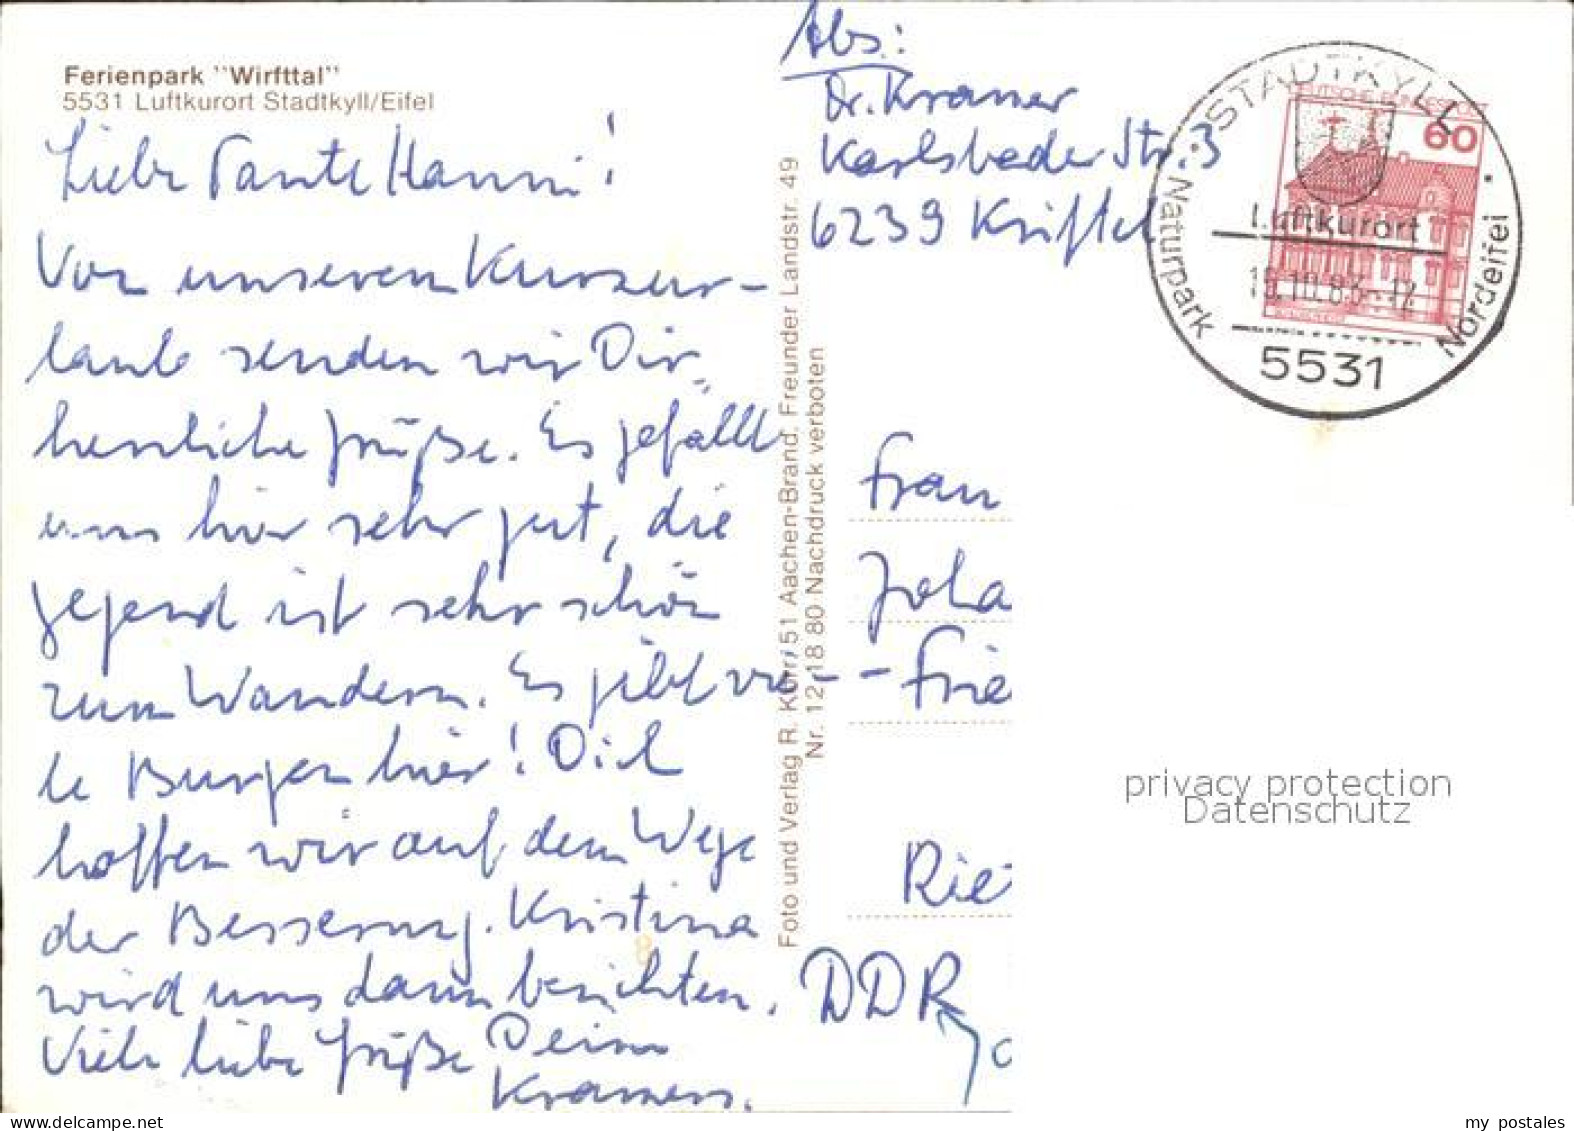 Ferienpark "Wirfttal"
5531 Luftkurort Stadtkyll/Eifel
Liebe Tante Hanni!
Von unserem Kurzur-
laub senden wir Dir
herzliche Grüße. Es gefällt
uns hier sehr gut, die
Gegend ist sehr schön
zum Wandern. Es gibt vie-
le Burgen hier! Dich
hoffen wir auf dem Wege
der Besserung. Kristina
wird uns dann berichten.
Viele liebe Grüße Deine
Kramers.
Foto und Verlag R. Kürr, 51 Aachen-Brand, Freunder Landstr. 49
Nr. 12 18 80 Nachdruck verboten
Abs:
Dr. Kramer
Karlsbader Str. 3
6239 Kriftel
DEUTSCHE BUNDESPOST
60
STADTKYLL
Luftkurort
10.83-12
Naturpark Nordeifel
5531
Frau
Jola
Frie
Rie
DDR
privacy protection
Datenschutz
my postales